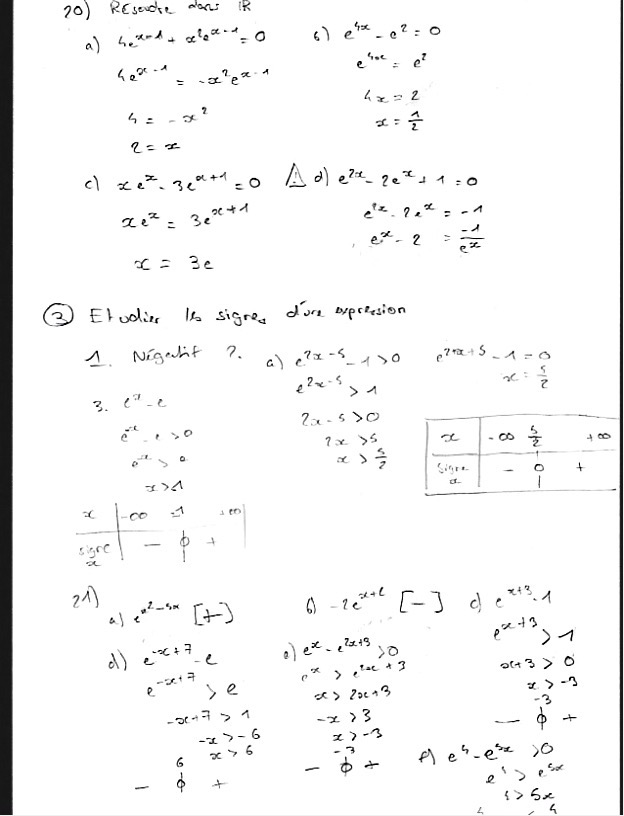 20) Résoudre dans IR
a) 4e^{x-1} + x²e^{x-1} = 0
4e^{x-1} = -x²e^{x-1}
4 = -x²
2 = x
b) e^{4x} - e² = 0
e^{4x} = e²
4x = 2
x = 1/2
c) xe^x - 3e^{x+1} = 0
xe^x = 3e^{x+1}
x = 3e
⚠ d) e^{2x} - 2e^x + 1 = 0
e^{2x} - 2e^x = -1
e^x - 2 = -1/e^x
③ Etudier les signes d'une expression
1. Négatif ?
a) e^{2x-5} - 1 > 0
e^{2x-5} > 1
2x - 5 > 0
2x > 5
x > 5/2
- 1 = 0
x = 5/2
x | -∞ 5/2 +∞
signe x | - 0 +
3. e^x - e
e^x - e > 0
e^x > e
x > 1
x | -∞ 1 +∞
signe x | - 0 +
21)
a) e^{x²-5x} [+]
b) -2e^{x+2} [-]
c) e^{x+3} - 1
e^{x+3} > 1
x+3 > 0
x > -3
-3
- 0 +
d) e^{-x+7} - e
e^{-x+7} > e
-x+7 > 1
-x > -6
x > 6
6
- 0 +
e) e^x - e^{2x+3} > 0
e^x > e^{2x+3}
x > 2x+3
-x > 3
x > -3
-3
- 0 +
f) e^4 - e^{5x} > 0
e^4 > e^{5x}
4 > 5x